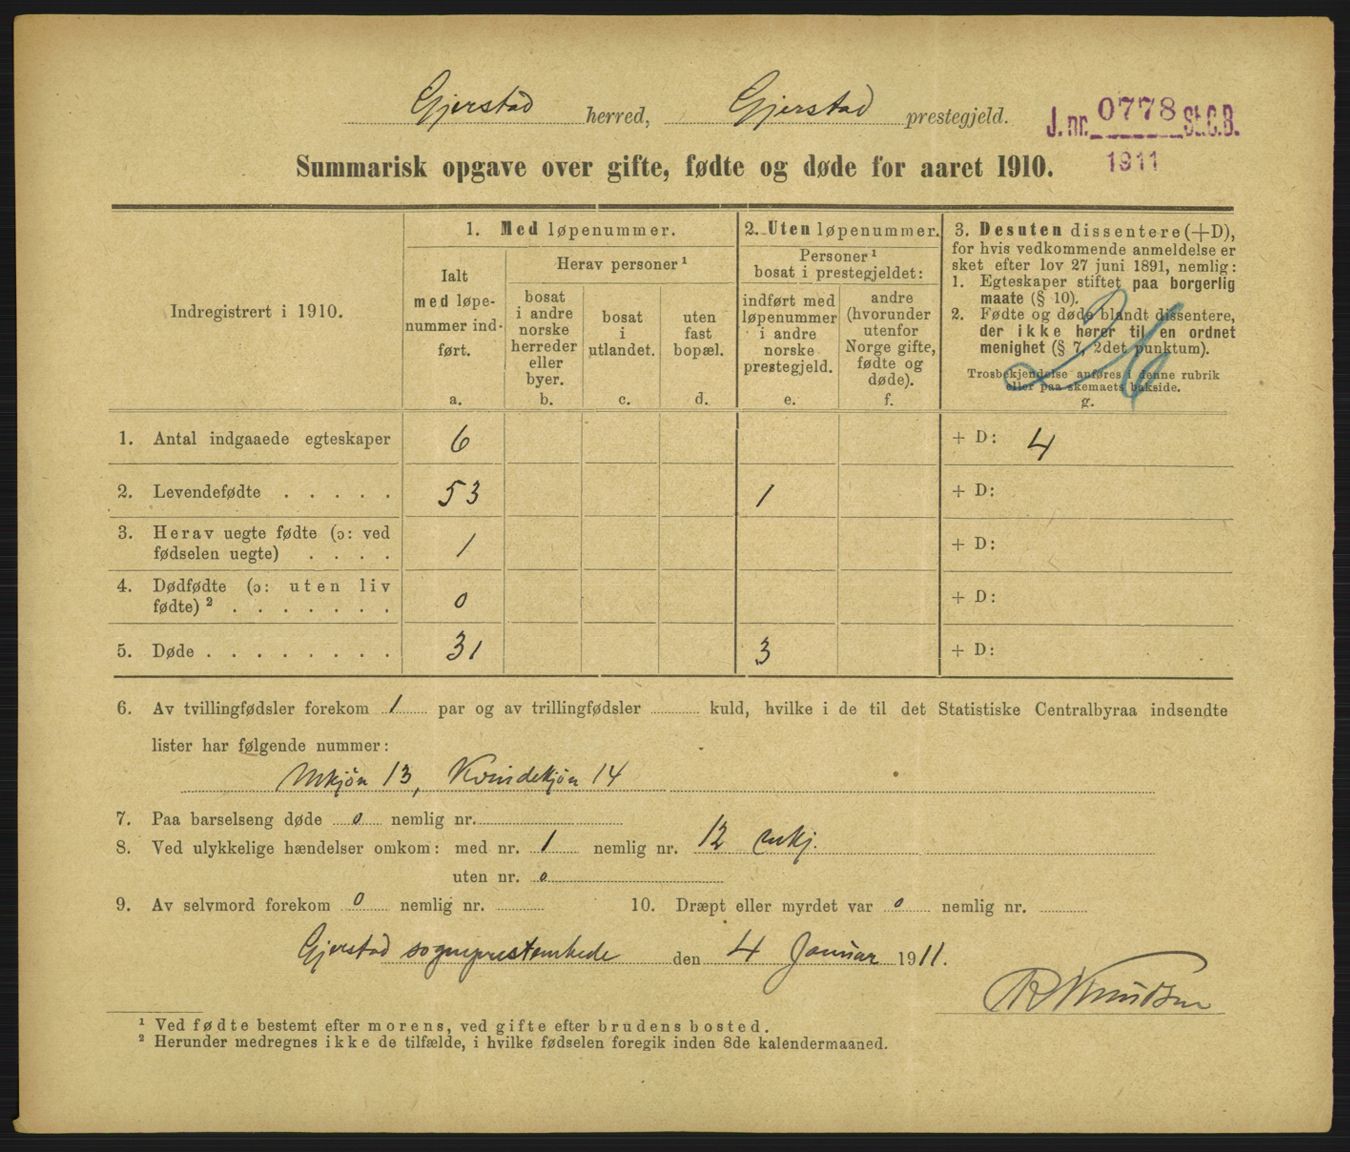 Gjerstad herred, Gjerstad prestegjeld.
J. nr. 0778 St. C. B.
1911
Summarisk opgave over gifte, fødte og døde for aaret 1910.
Indregistrert i 1910.
1. Med løpenummer.
Ialt
med løpe-
nummer ind-
ført.
a.
Herav personer ¹
bosat
i andre
norske
herreder
eller
byer.
b.
bosat
i
utlandet.
c.
uten
fast
bopæl.
d.
2. Uten løpenummer.
Personer ¹
bosat i prestegjeldet:
indført med
løpenummer
i andre
norske
prestegjeld.
e.
andre
(hvorunder
utenfor
Norge gifte,
fødte og
døde).
f.
3. Desuten dissentere (+D),
for hvis vedkommende anmeldelse er
sket efter lov 27 juni 1891, nemlig:
1. Egteskaper stiftet paa borgerlig
maate (§ 10).
2. Fødte og døde blandt dissentere,
der ikke hører til en ordnet
menighet (§ 7, 2det punktum).
Trosbekjendelse anføres i denne rubrik
eller paa skemaets bakside.
g.
26
1. Antal indgaaede egteskaper 6 + D: 4
2. Levendefødte . . . . . 53 1 + D:
3. Herav uegte fødte (ɔ: ved
fødselen uegte) . . . . 1 + D:
4. Dødfødte (ɔ: uten liv
fødte) ² . . . . . . . 0 + D:
5. Døde . . . . . . . . 31 3 + D:
6. Av tvillingfødsler forekom 1 par og av trillingfødsler kuld, hvilke i de til det Statistiske Centralbyraa indsendte
lister har følgende nummer:
Mkjøn 13, Kvindekjøn 14
7. Paa barselseng døde 0 nemlig nr.
8. Ved ulykkelige hændelser omkom: med nr. 1 nemlig nr. 12 mkj.
uten nr. 0
9. Av selvmord forekom 0 nemlig nr. 10. Dræpt eller myrdet var 0 nemlig nr.
Gjerstad sogneprestembede den 4 Januar 1911.
Knudsen
¹ Ved fødte bestemt efter morens, ved gifte efter brudens bosted.
² Herunder medregnes ikke de tilfælde, i hvilke fødselen foregik inden 8de kalendermaaned.